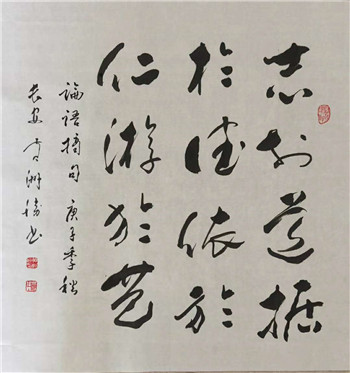 志於道据
於德依於
仁游於艺
論語摘句 庚子季秋
长安 书